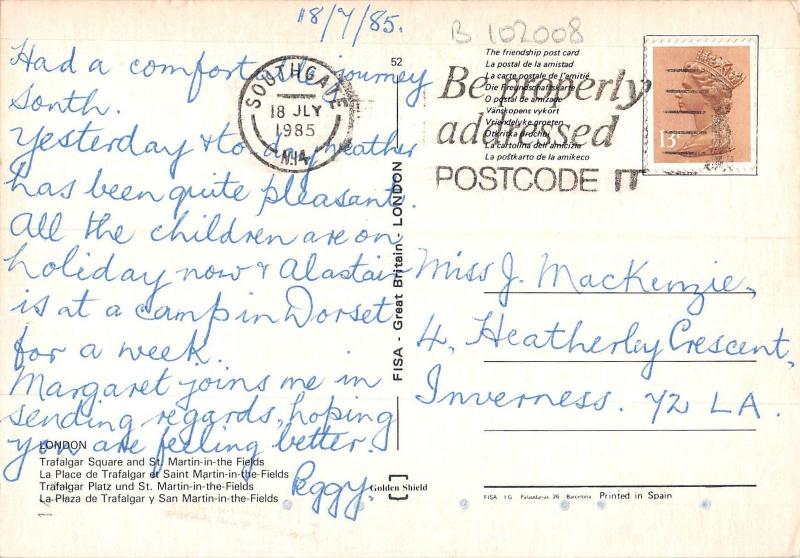 18/7/85.
B 102008
Had a comfortable journey
South.
Yesterday & today weather
has been quite pleasant.
All the children are on
holiday now & Alastair
is at a camp in Dorset
for a week.
Margaret joins me in
sending regards, hoping
you are feeling better.
Peggy.
LONDON
Trafalgar Square and St. Martin-in-the Fields
La Place de Trafalgar et Saint Martin-in-the-Fields
Trafalgar Platz und St. Martin-in-the-Fields
La Plaza de Trafalgar y San Martin-in-the-Fields
SOUTHGATE
18 JLY
1985
N.14
52
FISA - Great Britain - LONDON
Golden Shield
The friendship post card
La postal de la amistad
La carte postale de l'amitié
Die Freundschaftskarte
O postal de amizade
Vänskapens vykort
Vriendelyke groeten
Otkritka druzhbi
La cartolina dell'amicizia
La poŝtkarto de la amikeco
Be properly
addressed
POSTCODE IT
13
Miss J. MacKenzie,
4, Heatherley Crescent,
Inverness. Y2 LA.
FISA I.G. Palaudarias, 26 Barcelona Printed in Spain